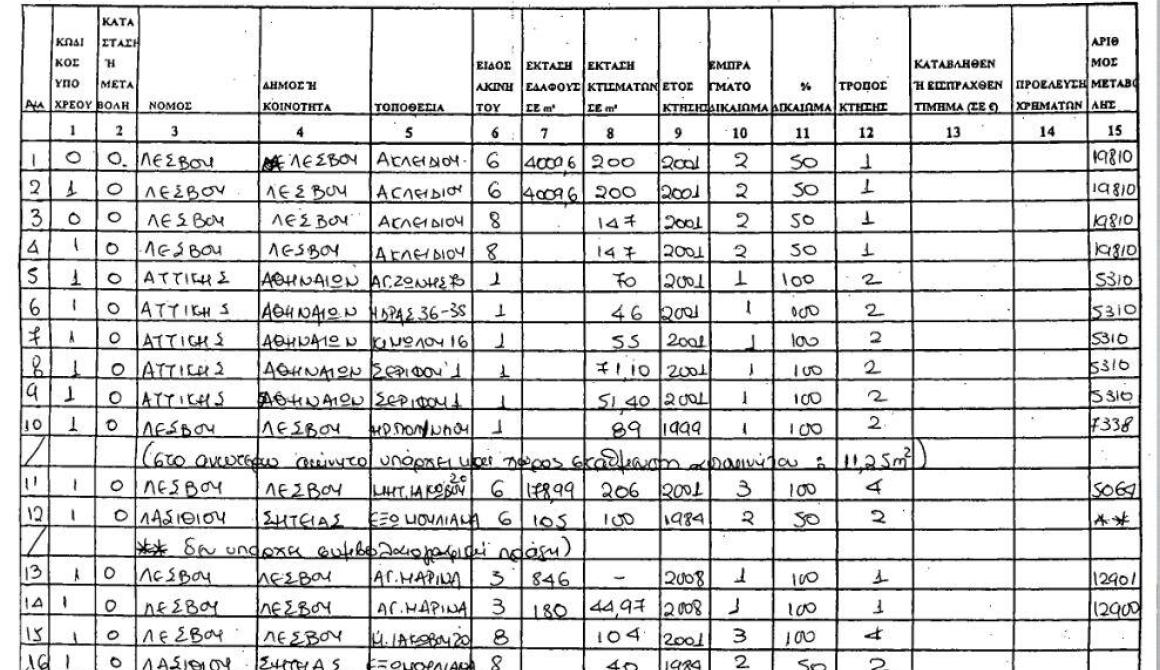 Α/Α ΚΩΔΙΚΟΣ ΥΠΟΧΡΕΟΥ ΚΑΤΑΣΤΑΣΗ Ή ΜΕΤΑΒΟΛΗ ΝΟΜΟΣ ΔΗΜΟΣ Ή ΚΟΙΝΟΤΗΤΑ ΤΟΠΟΘΕΣΙΑ ΕΙΔΟΣ ΑΚΙΝΗΤΟΥ ΕΚΤΑΣΗ ΕΔΑΦΟΥΣ ΣΕ m² ΕΚΤΑΣΗ ΚΤΙΣΜΑΤΩΝ ΣΕ m² ΕΤΟΣ ΚΤΗΣΗΣ ΕΜΠΡΑΓΜΑΤΟ ΔΙΚΑΙΩΜΑ % ΔΙΚΑΙΩΜΑ ΤΡΟΠΟΣ ΚΤΗΣΗΣ ΚΑΤΑΒΛΗΘΕΝ Ή ΕΙΣΠΡΑΧΘΕΝ ΤΙΜΗΜΑ (ΣΕ €) ΠΡΟΕΛΕΥΣΗ ΧΡΗΜΑΤΩΝ ΑΡΙΘΜΟΣ ΜΕΤΑΒΟΛΗΣ
1 2 3 4 5 6 7 8 9 10 11 12 13 14 15
1 0 0 ΛΕΣΒΟΥ ΛΕΣΒΟΥ ΑΚΛΕΙΔΙΟΥ 6 4009,6 200 2001 2 50 1 19810
2 1 0 ΛΕΣΒΟΥ ΛΕΣΒΟΥ ΑΚΛΕΙΔΙΟΥ 6 4009,6 200 2001 2 50 1 19810
3 0 0 ΛΕΣΒΟΥ ΛΕΣΒΟΥ ΑΚΛΕΙΔΙΟΥ 8 147 2001 2 50 1 19810
4 1 0 ΛΕΣΒΟΥ ΛΕΣΒΟΥ ΑΚΛΕΙΔΙΟΥ 8 147 2001 2 50 1 19810
5 1 0 ΑΤΤΙΚΗΣ ΑΘΗΝΑΙΩΝ ΑΓ.ΖΩΝΗΣ 1 70 2001 1 100 2 5310
6 1 0 ΑΤΤΙΚΗΣ ΑΘΗΝΑΙΩΝ ΥΔΡΑΣ 36-38 1 46 2001 1 100 2 5310
7 1 0 ΑΤΤΙΚΗΣ ΑΘΗΝΑΙΩΝ ΚΙΜΩΛΟΥ 16 1 55 2001 1 100 2 5310
8 1 0 ΑΤΤΙΚΗΣ ΑΘΗΝΑΙΩΝ ΣΕΡΙΦΟΥ 1 1 71,10 2001 1 100 2 5310
9 1 0 ΑΤΤΙΚΗΣ ΑΘΗΝΑΙΩΝ ΣΕΡΙΦΟΥ 1 1 51,40 2001 1 100 2 5310
10 1 0 ΛΕΣΒΟΥ ΛΕΣΒΟΥ 1 89 1999 1 100 2 7338
(στο ανωτέρω ακίνητο υπάρχει και χώρος στάθμευση αυτοκινήτου : 11,25 m²)
11 1 0 ΛΕΣΒΟΥ ΛΕΣΒΟΥ ΜΗΤ.ΙΑΚΩΒΟΥ 20 6 178,99 206 2001 3 100 4 5064
12 1 0 ΛΑΣΙΘΙΟΥ ΣΗΤΕΙΑΣ ΕΞΩ ΜΟΥΛΙΑΝΑ 6 105 100 1984 2 50 2 **
** δεν υπάρχει συμβολαιογραφική πράξη)
13 1 0 ΛΕΣΒΟΥ ΛΕΣΒΟΥ ΑΓ.ΜΑΡΙΝΑ 3 846 - 2008 1 100 1 12901
14 1 0 ΛΕΣΒΟΥ ΛΕΣΒΟΥ ΑΓ.ΜΑΡΙΝΑ 3 180 44,97 2008 1 100 1 12900
15 1 0 ΛΕΣΒΟΥ ΛΕΣΒΟΥ Μ.ΙΑΚΩΒΟΥ 20 8 104 2001 3 100 4
16 1 0 ΛΑΣΙΘΙΟΥ ΣΗΤΕΙΑΣ ΕΞΩ ΜΟΥΛΙΑΝΑ 8 40 1984 2 50 2